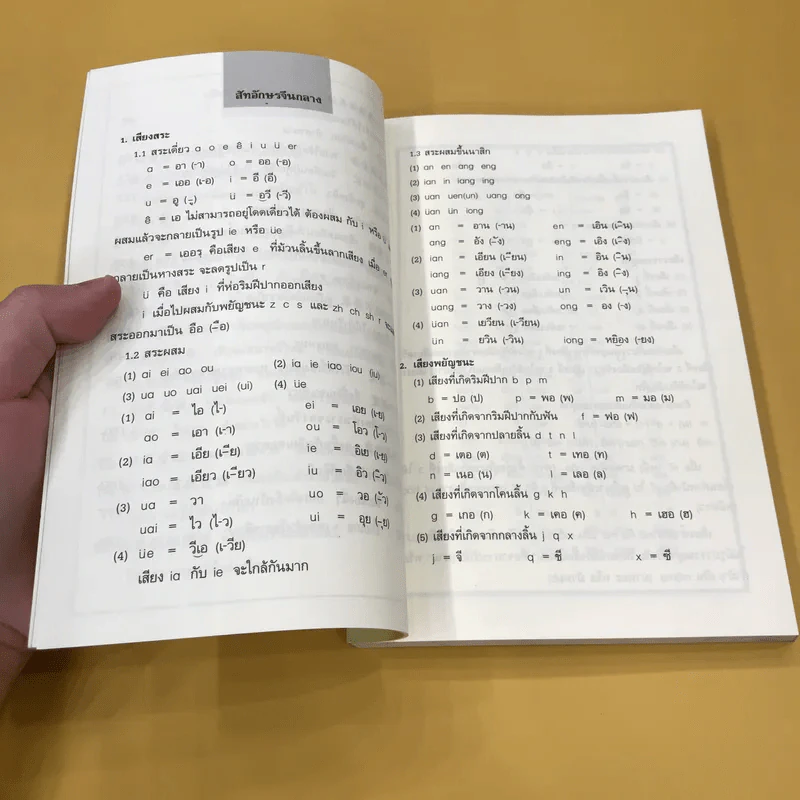 สัทอักษรจีนกลาง
1. เสียงสระ
1.1 สระเดี่ยว a o e ê i u ü er
a = อา (-า) o = ออ (-อ)
e = เออ (เ-อ) i = อี (อี)
u = อู (-ู) ü = อวี (-วี)
ê = เอ ไม่สามารถอยู่โดดเดี่ยวได้ ต้องผสม กับ i หรือ ü
ผสมแล้วจะกลายเป็นรูป ie หรือ üe
er = เออร คือเสียง e ที่ม้วนลิ้นขึ้นลากเสียง เมื่อ er
กลายเป็นหางสระ จะลดรูปเป็น r
ü คือ เสียง i ที่ห่อริมฝีปากออกเสียง
i เมื่อไปผสมกับพยัญชนะ z c s และ zh ch sh r
สระออกมาเป็น อือ (-ือ)
1.2 สระผสม
(1) ai ei ao ou (2) ia ie iao iou (iu)
(3) ua uo uai uei (ui) (4) üe
(1) ai = ไอ (ไ-) ei = เอย (เ-ย)
ao = เอา (เ-า) ou = โอว (โ-ว)
(2) ia = เอีย (เ-ีย) ie = อิเย (เ-ย)
iao = เอียว (เ-ียว) iu = อิว (-ิว)
(3) ua = วา uo = วอ (-ัว)
uai = ไว (ไ-ว) ui = อุย (-ุย)
(4) üe = วีเอ (เ-วีย)
เสียง ia กับ ie จะใกล้กันมาก
1.3 สระผสมขึ้นนาสิก
(1) an en ang eng
(2) ian in iang ing
(3) uan uen(un) uang ong
(4) üan ün iong
(1) an = อาน (-าน) en = เอิน (เ-ิน)
ang = อัง (-ัง) eng = เอิง (เ-ิง)
(2) ian = เอียน (เ-ียน) in = อิน (-ิน)
iang = เอียง (เ-ียง) ing = อิง (-ิง)
(3) uan = วาน (-วน) un = เวิน (-ุน)
uang = วาง (-วง) ong = อง (-ง)
(4) üan = เยวียน (เ-วียน)
ün = ยวิน (-วิน) iong = หยิอง (-ยง)
2. เสียงพยัญชนะ
(1) เสียงที่เกิดริมฝีปาก b p m
b = ปอ (ป) p = พอ (พ) m = มอ (ม)
(2) เสียงที่เกิดจากริมฝีปากกับฟัน f = ฟอ (ฟ)
(3) เสียงที่เกิดจากปลายลิ้น d t n l
d = เตอ (ต) t = เทอ (ท)
n = เนอ (น) l = เลอ (ล)
(4) เสียงที่เกิดจากโคนลิ้น g k h
g = เกอ (ก) k = เคอ (ค) h = เฮอ (ฮ)
(5) เสียงที่เกิดจากกลางลิ้น j q x
j = จี q = ชี x = ซี